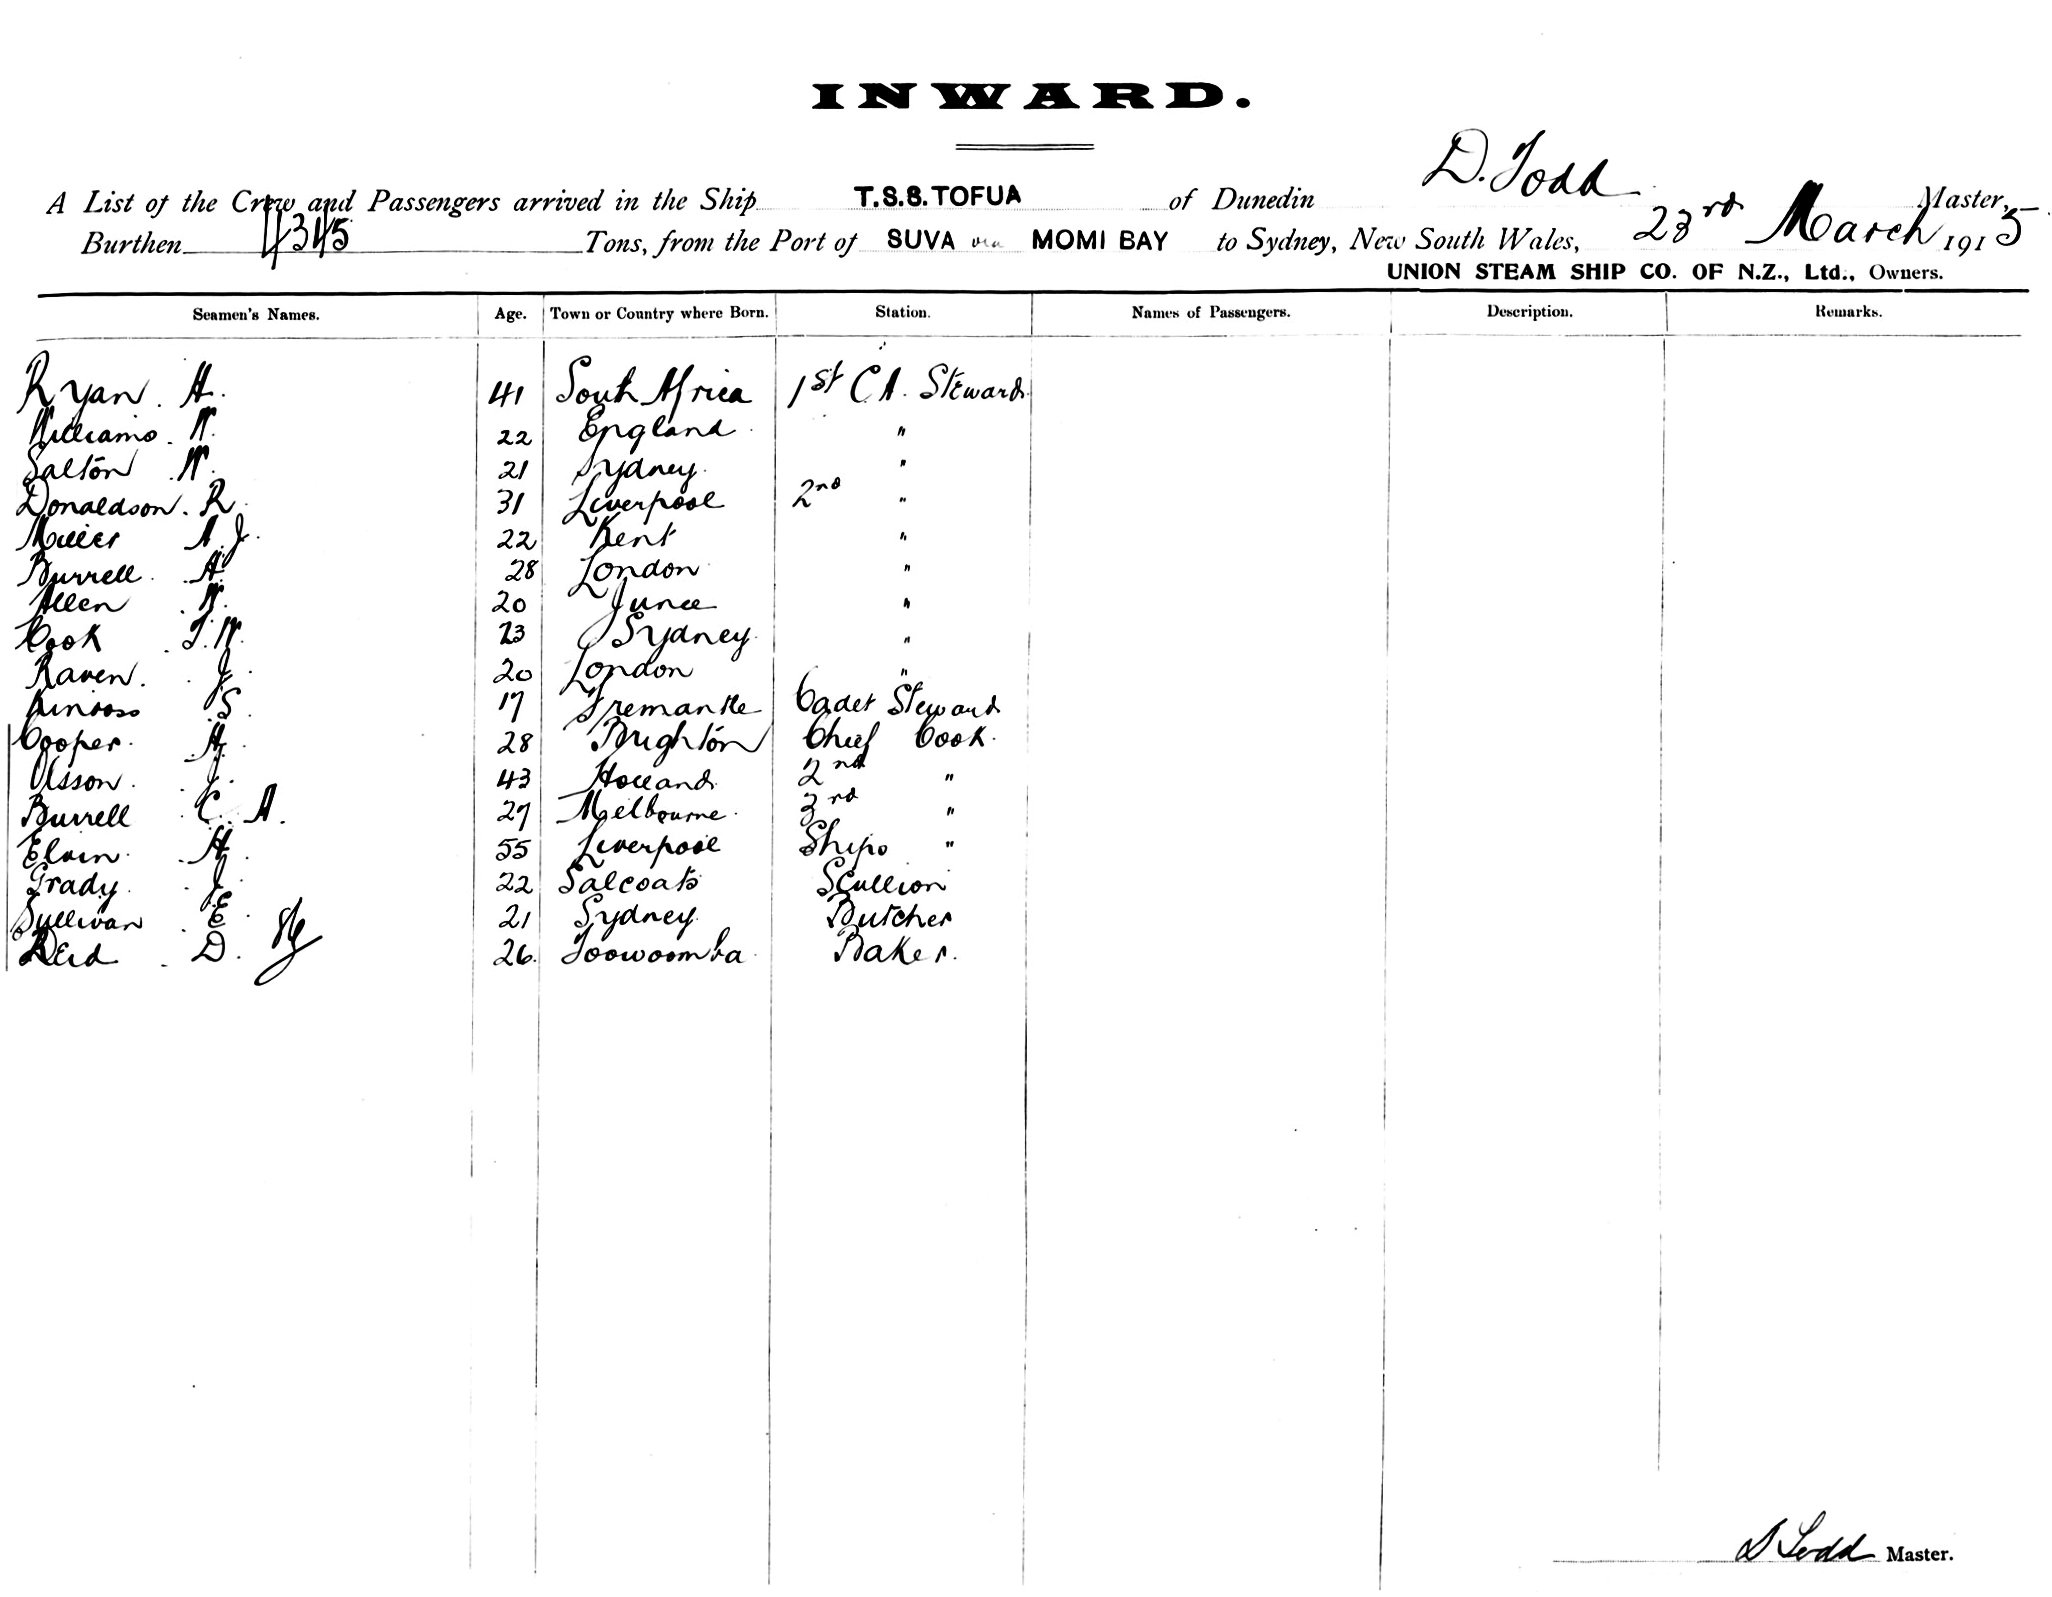 INWARD.
D. Todd
A List of the Crew and Passengers arrived in the Ship T.S.S. TOFUA of Dunedin Master,
Burthen 4345 Tons, from the Port of SUVA via MOMI BAY to Sydney, New South Wales, 23rd March 1915
UNION STEAM SHIP CO. OF N.Z., Ltd., Owners.
Seamen's Names. Age. Town or Country where Born. Station. Names of Passengers. Description. Remarks.
Ryan . H. 41 South Africa 1st Cl. Steward
Williams . W. 22 England "
Salton . W. 21 Sydney "
Donaldson . R. 31 Liverpool 2nd "
Miller A. J. 22 Kent "
Burrell . A. 28 London "
Allen . W. 20 Junee "
Cook . T. W. 23 Sydney "
Raven . J. 20 London "
Kinross S. 17 Fremantle Cadet Steward
Cooper . H. 28 Brighton Chief Cook.
Olsson . J. 43 Holland 2nd "
Burrell C. A. 27 Melbourne 3rd "
Elvin . H. 55 Liverpool Ships "
Grady . J. 22 Salcoats Scullion
Sullivan . E. 21 Sydney Butcher
Reid . D. 26. Toowoomba Baker.
D Todd Master.